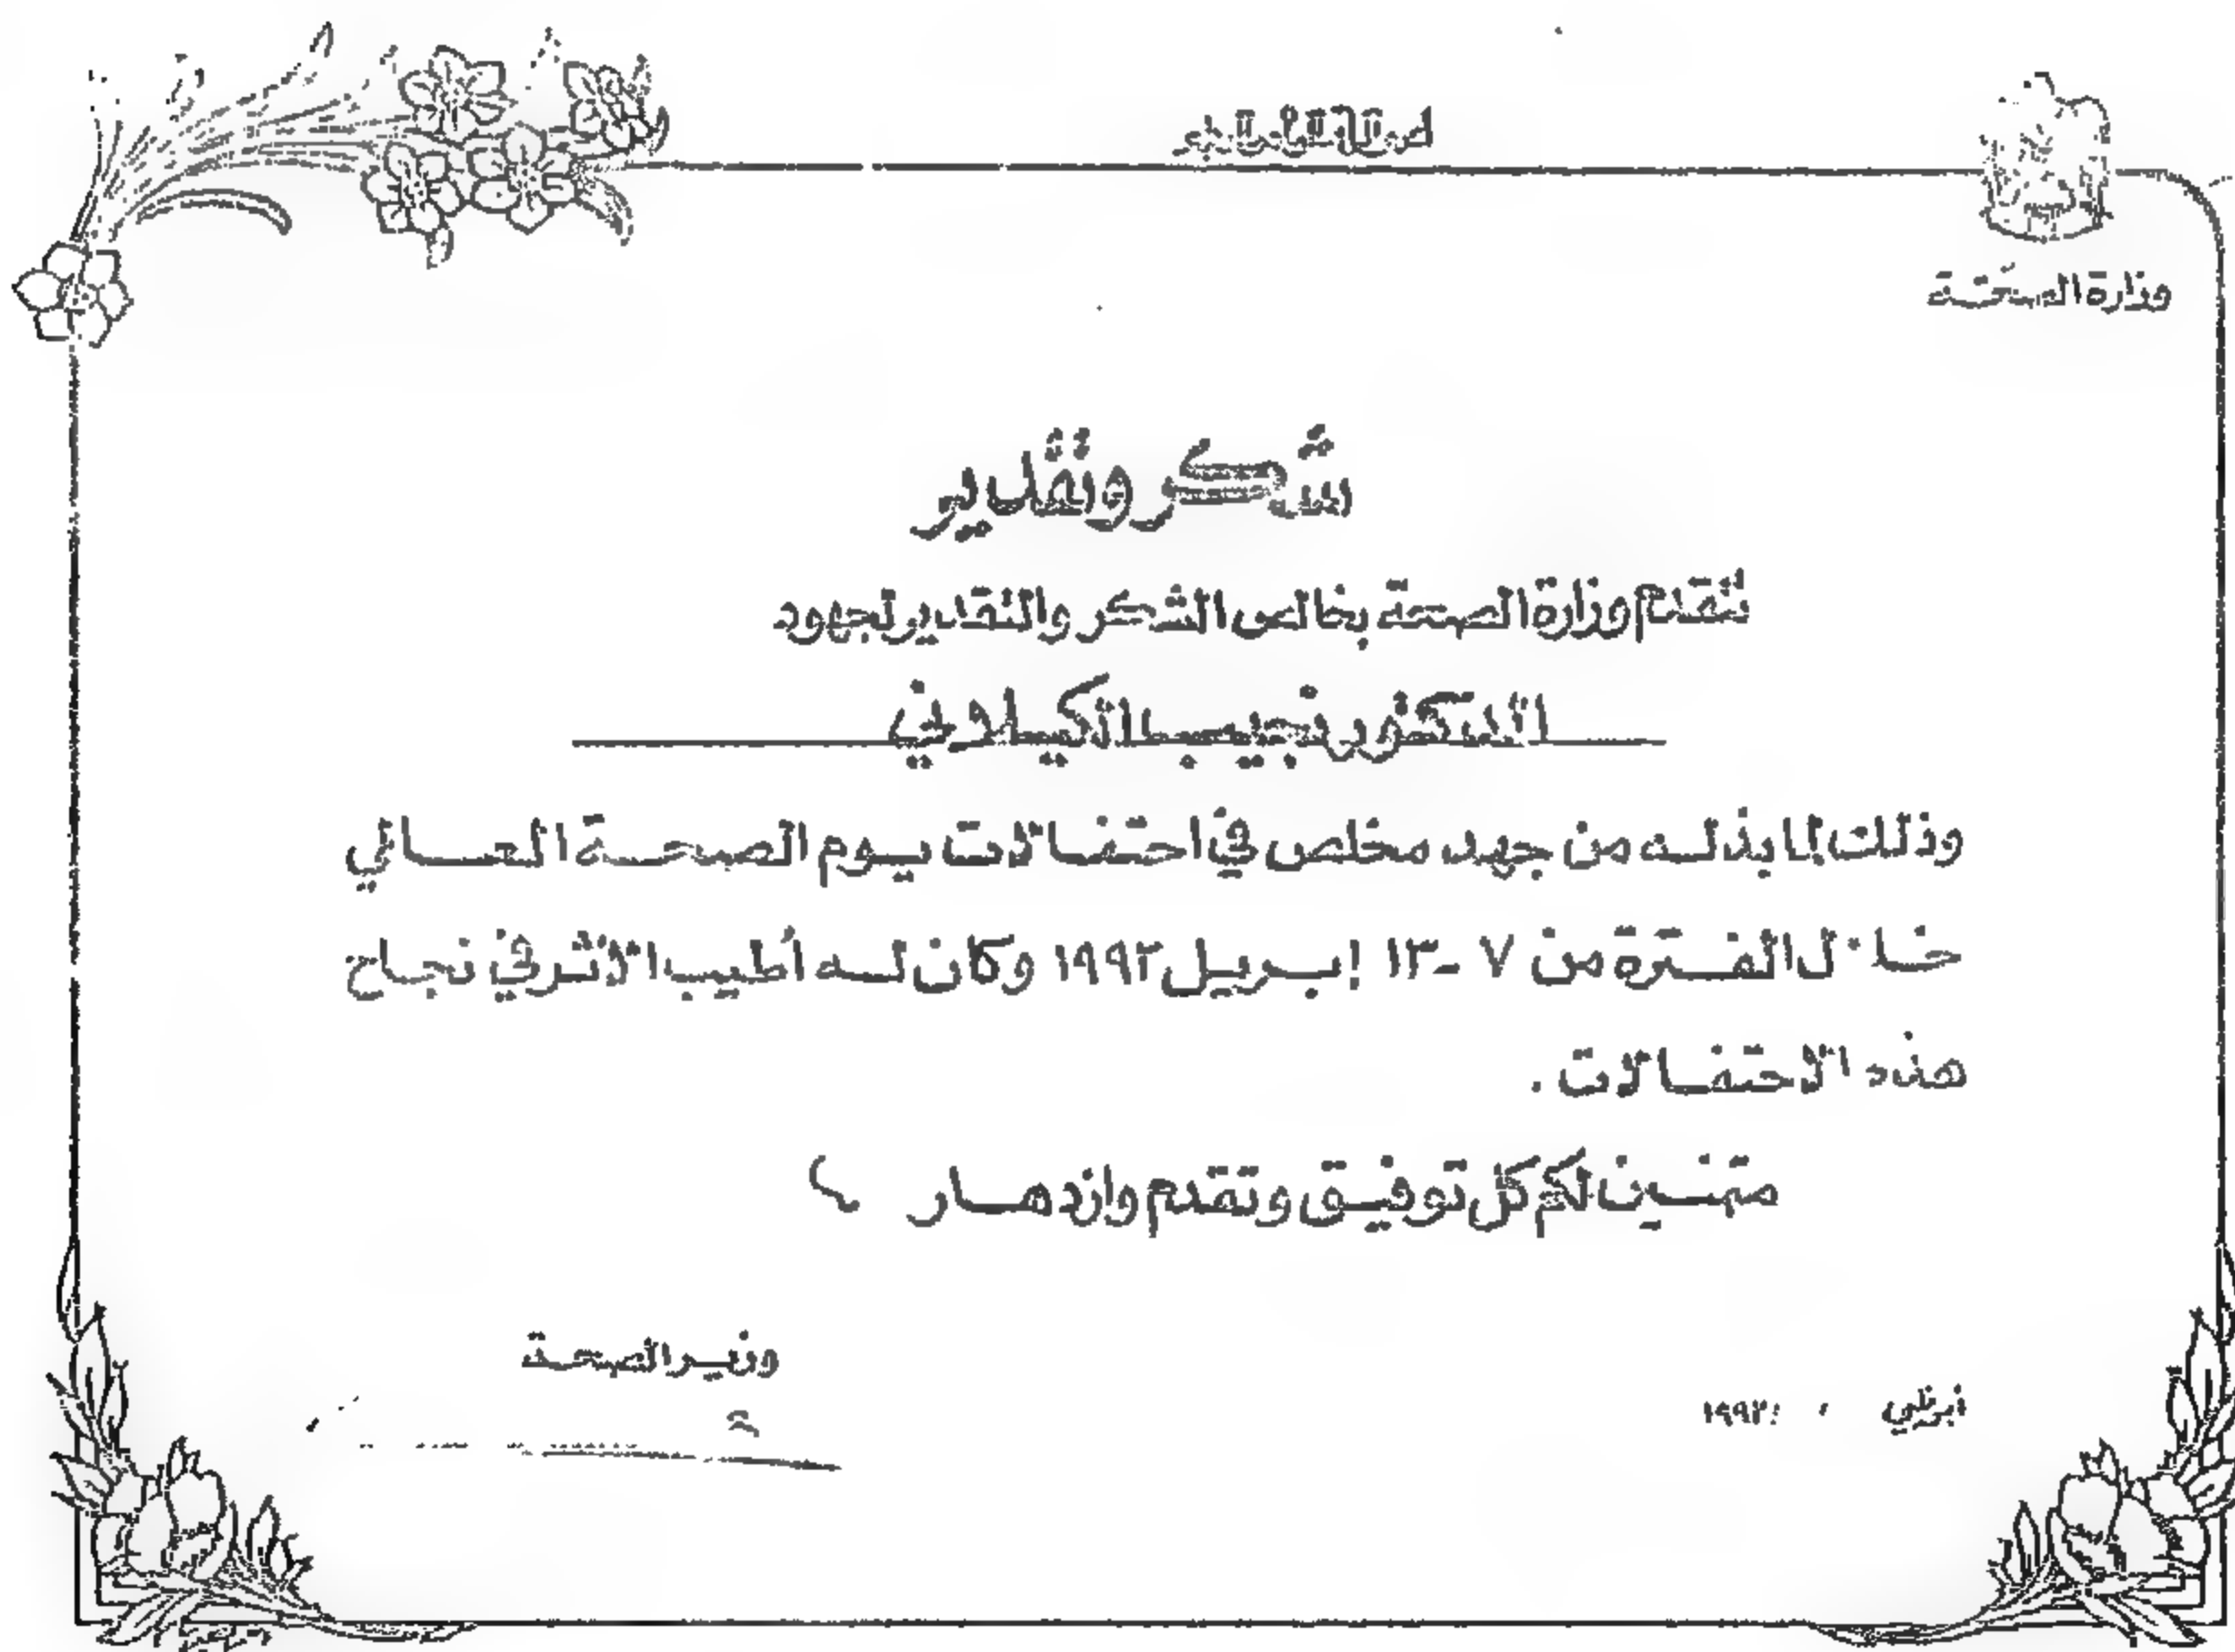 وزارة الصحّة
شكر وتقدير
تتقدم وزارة الصحة بخالص الشكر والتقدير لجهود
الدكتور نجيب الكيلاني
وذلك لما بذله من جهد مخلص في احتفالات يوم الصحة العالمي
خلال الفترة من ٧ - ١٣ إبريل ١٩٩٢ وكان له أطيب الأثر في نجاح
هذه الاحتفالات .
متمنين لكم كل توفيق وتقدم وازدهار
وزير الصحة
أبوظبي ١٩٩٢